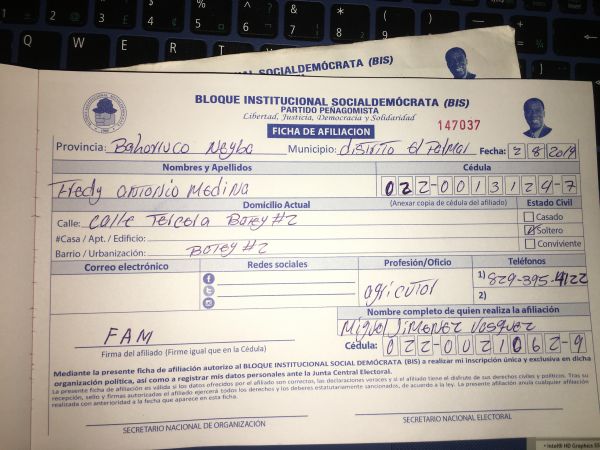 SOCIALDEMÓCRATA (BIS)
BLOQUE INSTITUCIONAL SOCIALDEMÓCRATA (BIS)
PARTIDO PEÑAGOMISTA
Libertad, Justicia, Democracia y Solidaridad
FICHA DE AFILIACION
147037
Provincia: Bahoruco Neyba Municipio: distrito el Palmar Fecha: 2 8 2019
Nombres y Apellidos Cédula
Fredy antonio Medina 022-0013129-7
Domicilio Actual (Anexar copia de cédula del afiliado) Estado Civil
Calle: calle Tercera Batey #2 Casado
#Casa / Apt. / Edificio: Soltero
Barrio / Urbanización: Batey #2 Conviviente
Correo electrónico Redes sociales Profesión/Oficio Teléfonos
agricutor 1) 829-395-4122
2)
Nombre completo de quien realiza la afiliación
FAM Miguel Jimenez Vasquez
Firma del afiliado (Firme igual que en la Cédula) Cédula: 022-0021062-9
Mediante la presente ficha de afiliación autorizo al BLOQUE INSTITUCIONAL SOCIAL DEMÓCRATA (BIS) a realizar mi inscripción única y exclusiva en dicha
organización política, así como a registrar mis datos personales ante la Junta Central Electoral.
La presente ficha de afiliación es válida si los datos ofrecidos por el afiliado son correctos, las declaraciones veraces y si el afiliado tiene el disfrute de sus derechos civiles y políticos. Tras su
recepción, sello y firmas autorizadas el afiliado ejercerá todos los derechos y los deberes estatutariamente sancionados, de acuerdo a la ley. La presente afiliación anula cualquier afiliación
realizada con anterioridad a la fecha que aparece en esta ficha.
SECRETARIO NACIONAL DE ORGANIZACIÓN SECRETARIO NACIONAL ELECTORAL